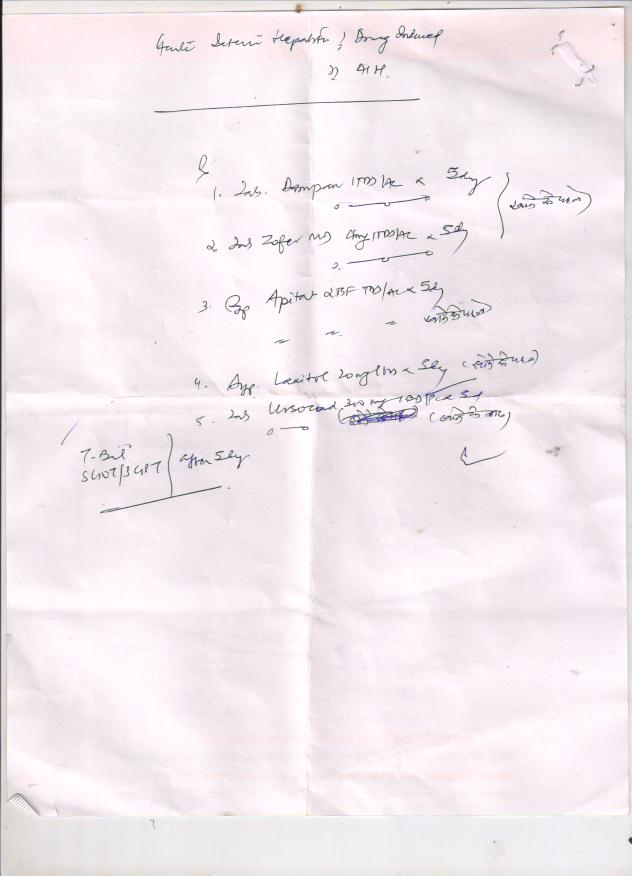 Acute Icteric Hepatitis ? Drug Induced
?) AIH.
1. Tab. Dompan 1TDS/AC x 5dy
(खाने के पहले)
2. Tab Zofer MD 4mg 1TDS/AC x 5dy
3. Cap Apitat 2BF TDS/AC x 5dy
(खाने के पहले)
4. Syp. Laxitol 20ml HS x 5dy (सोने के पहले)
5. Tab Ursocad 300mg 1BD/PC x 5dy
(खाने के बाद)
T-Bil
SGOT/SGPT after 5dy